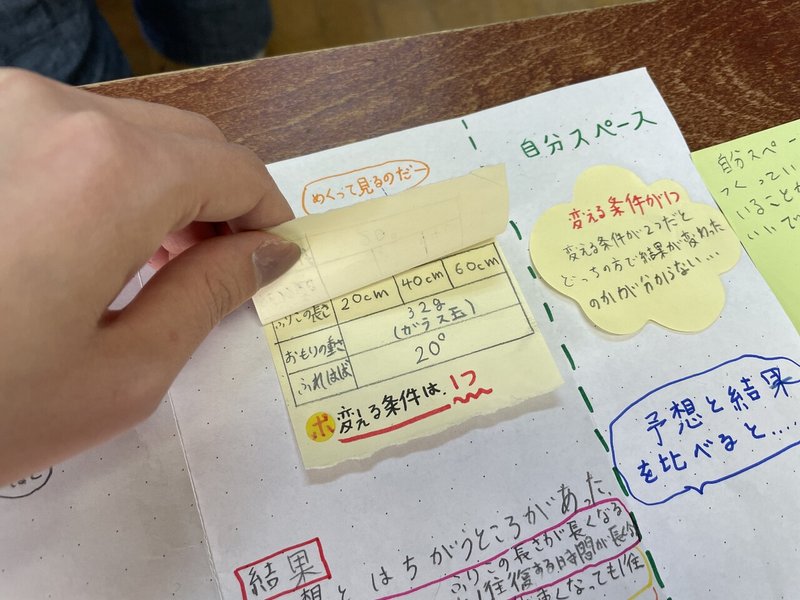 自分スペース
めくって見るのだー
ふりこの長さ 20cm 40cm 60cm
おもりの重さ 32g
(ガラス玉)
ふれはば 20°
ポ 変える条件は、1つ
変える条件が1つ
変える条件が2つだと
どっちの方で結果が変わった
のかが分からない…
自分スペー
つくってい
いることが
いいで
予想と結果
を比べると……
結果
予想とはちがうところがあった。
ふりこの長さが長くなる
1往復する時間が長く
なっても1往